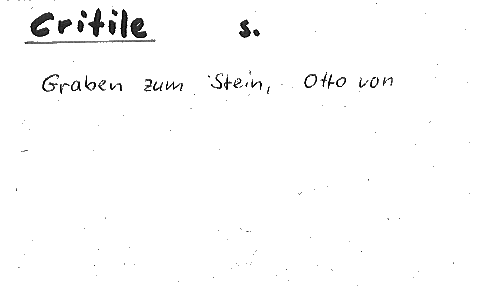 Critile s.
Graben zum Stein, Otto von